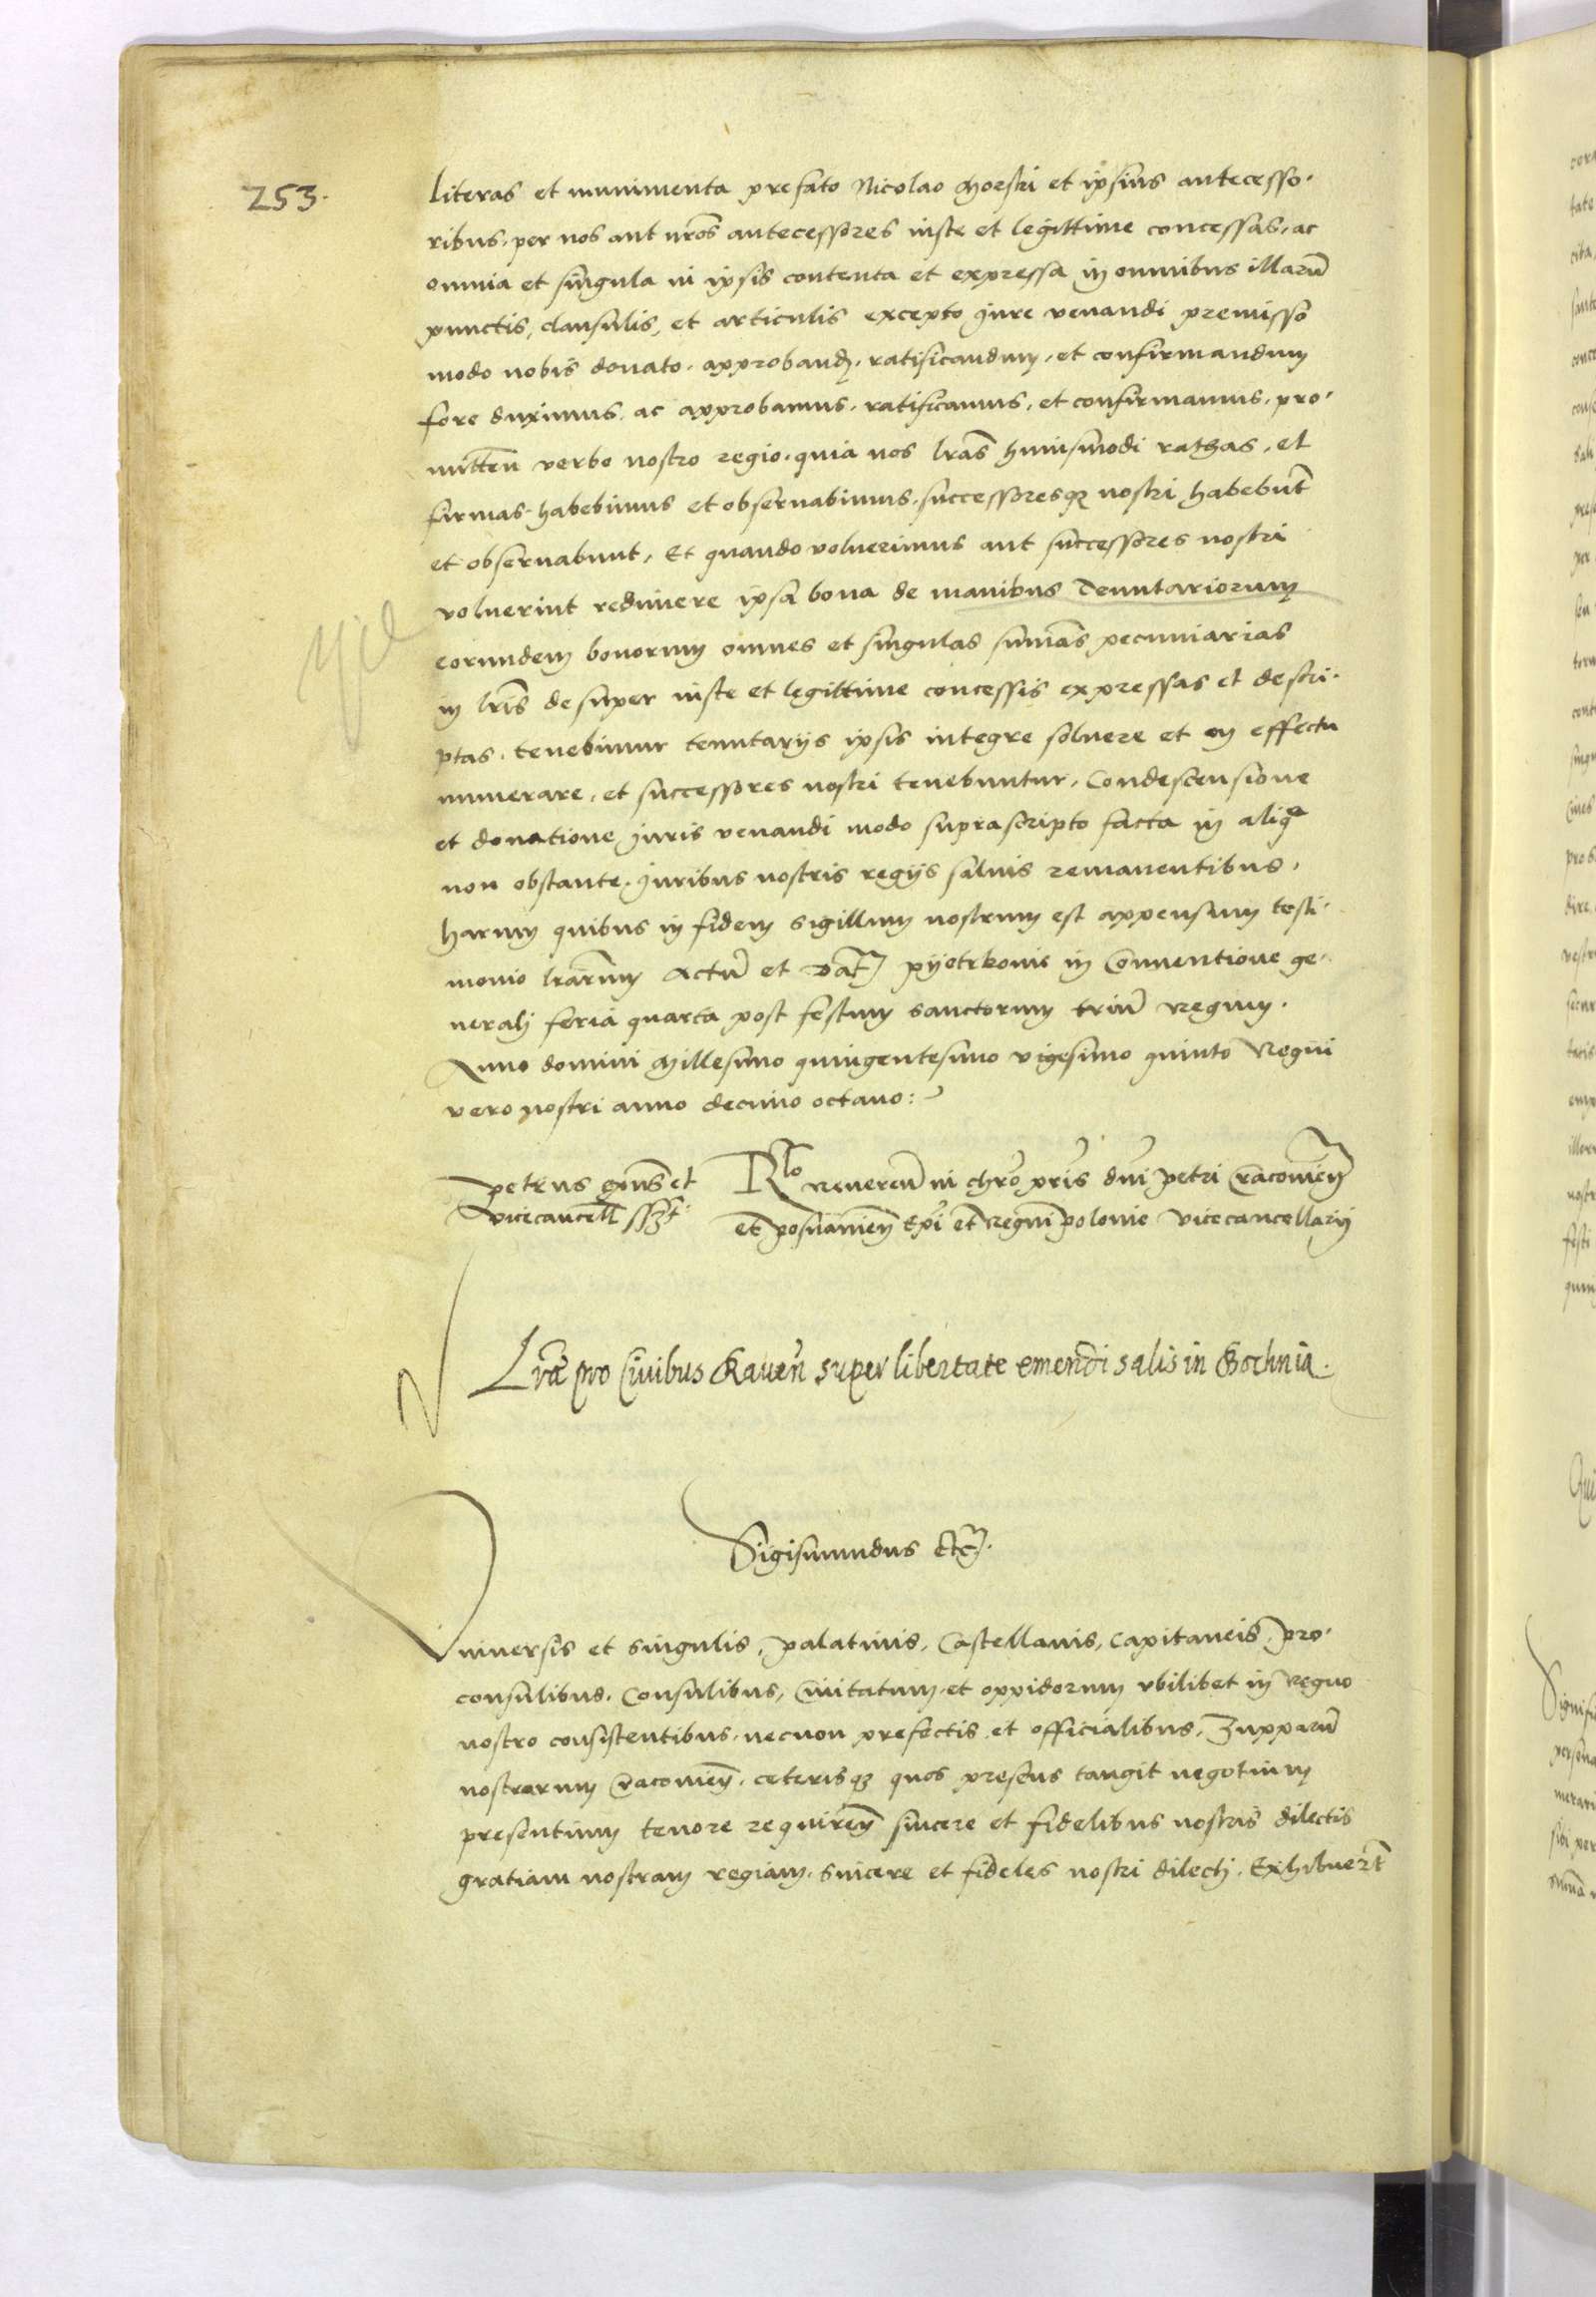 253.
literas et munimenta prefato Nicolao Morski et ipsius antecesso.
ribus, per nos aut nros antecessores iuste et legittime concessas, ac
omnia et singula in ipsis contenta et expressa in omnibus illarum
punctis, clausulis, et articulis excepto jure venandi premisso
modo nobis donato. approband. ratificandum, et confirmandum
fore duximus. ac approbamus. ratificamus, et confirmamus. pro.
mitten verbo nostro regio. quia nos lras huiusmodi rathas, et
firmas habebimus et observabimus. successoresq nostri habebunt
et observabunt, Et quando voluerimus aut successores nostri
voluerint redimere ipsa bona de manibus Tenutariorum
eorundem bonorum omnes et singulas sumas pecuniarias
in lris desuper iuste et legittime concessis expressas et descri.
ptas. tenebimur tenutarijs ipsis integre solvere et in effectu
numerare, et successores nostri tenebuntur. Condescensione
et donatione juris venandi modo suprascripto facta in aliqo
non obstante. Juribus nostris regijs salvis remanentibus.
harum quibus in fidem sigillum nostrum est appensum testi.
monio lrarum Actu et Dat Pyotrkovie in Conventione ge.
nerali feria quarta post festum sanctorum triu Regum.
Anno domini Millesimo quingentesimo vigesimo quinto Regni
vero nostri anno decimo octavo:
Petrus epus et
vicecancell sst
Rlo Reveren in chro pris dni Petri Cracovien
et posnanien Epi et Regni polonie vicecancellarij
Lrae pro Civibus Raven super libertate emendi salis in Bochnia.
Sigismundus etc.
Universis et singulis, palatinis, Castellanis, Capitaneis. pro.
consulibus. Consulibus, Civitatum, et oppidorum ubilibet in Regno
nostro consistentibus. necnon prefectis et officialibus. Zupparu
nostrarum Cracovien. ceterisq quos presens tangit negotium
presentium tenore requiren sincere et fidelibus nostris dilectis
gratiam nostram regiam. sincere et fideles nostri dilecti. Exhibuert